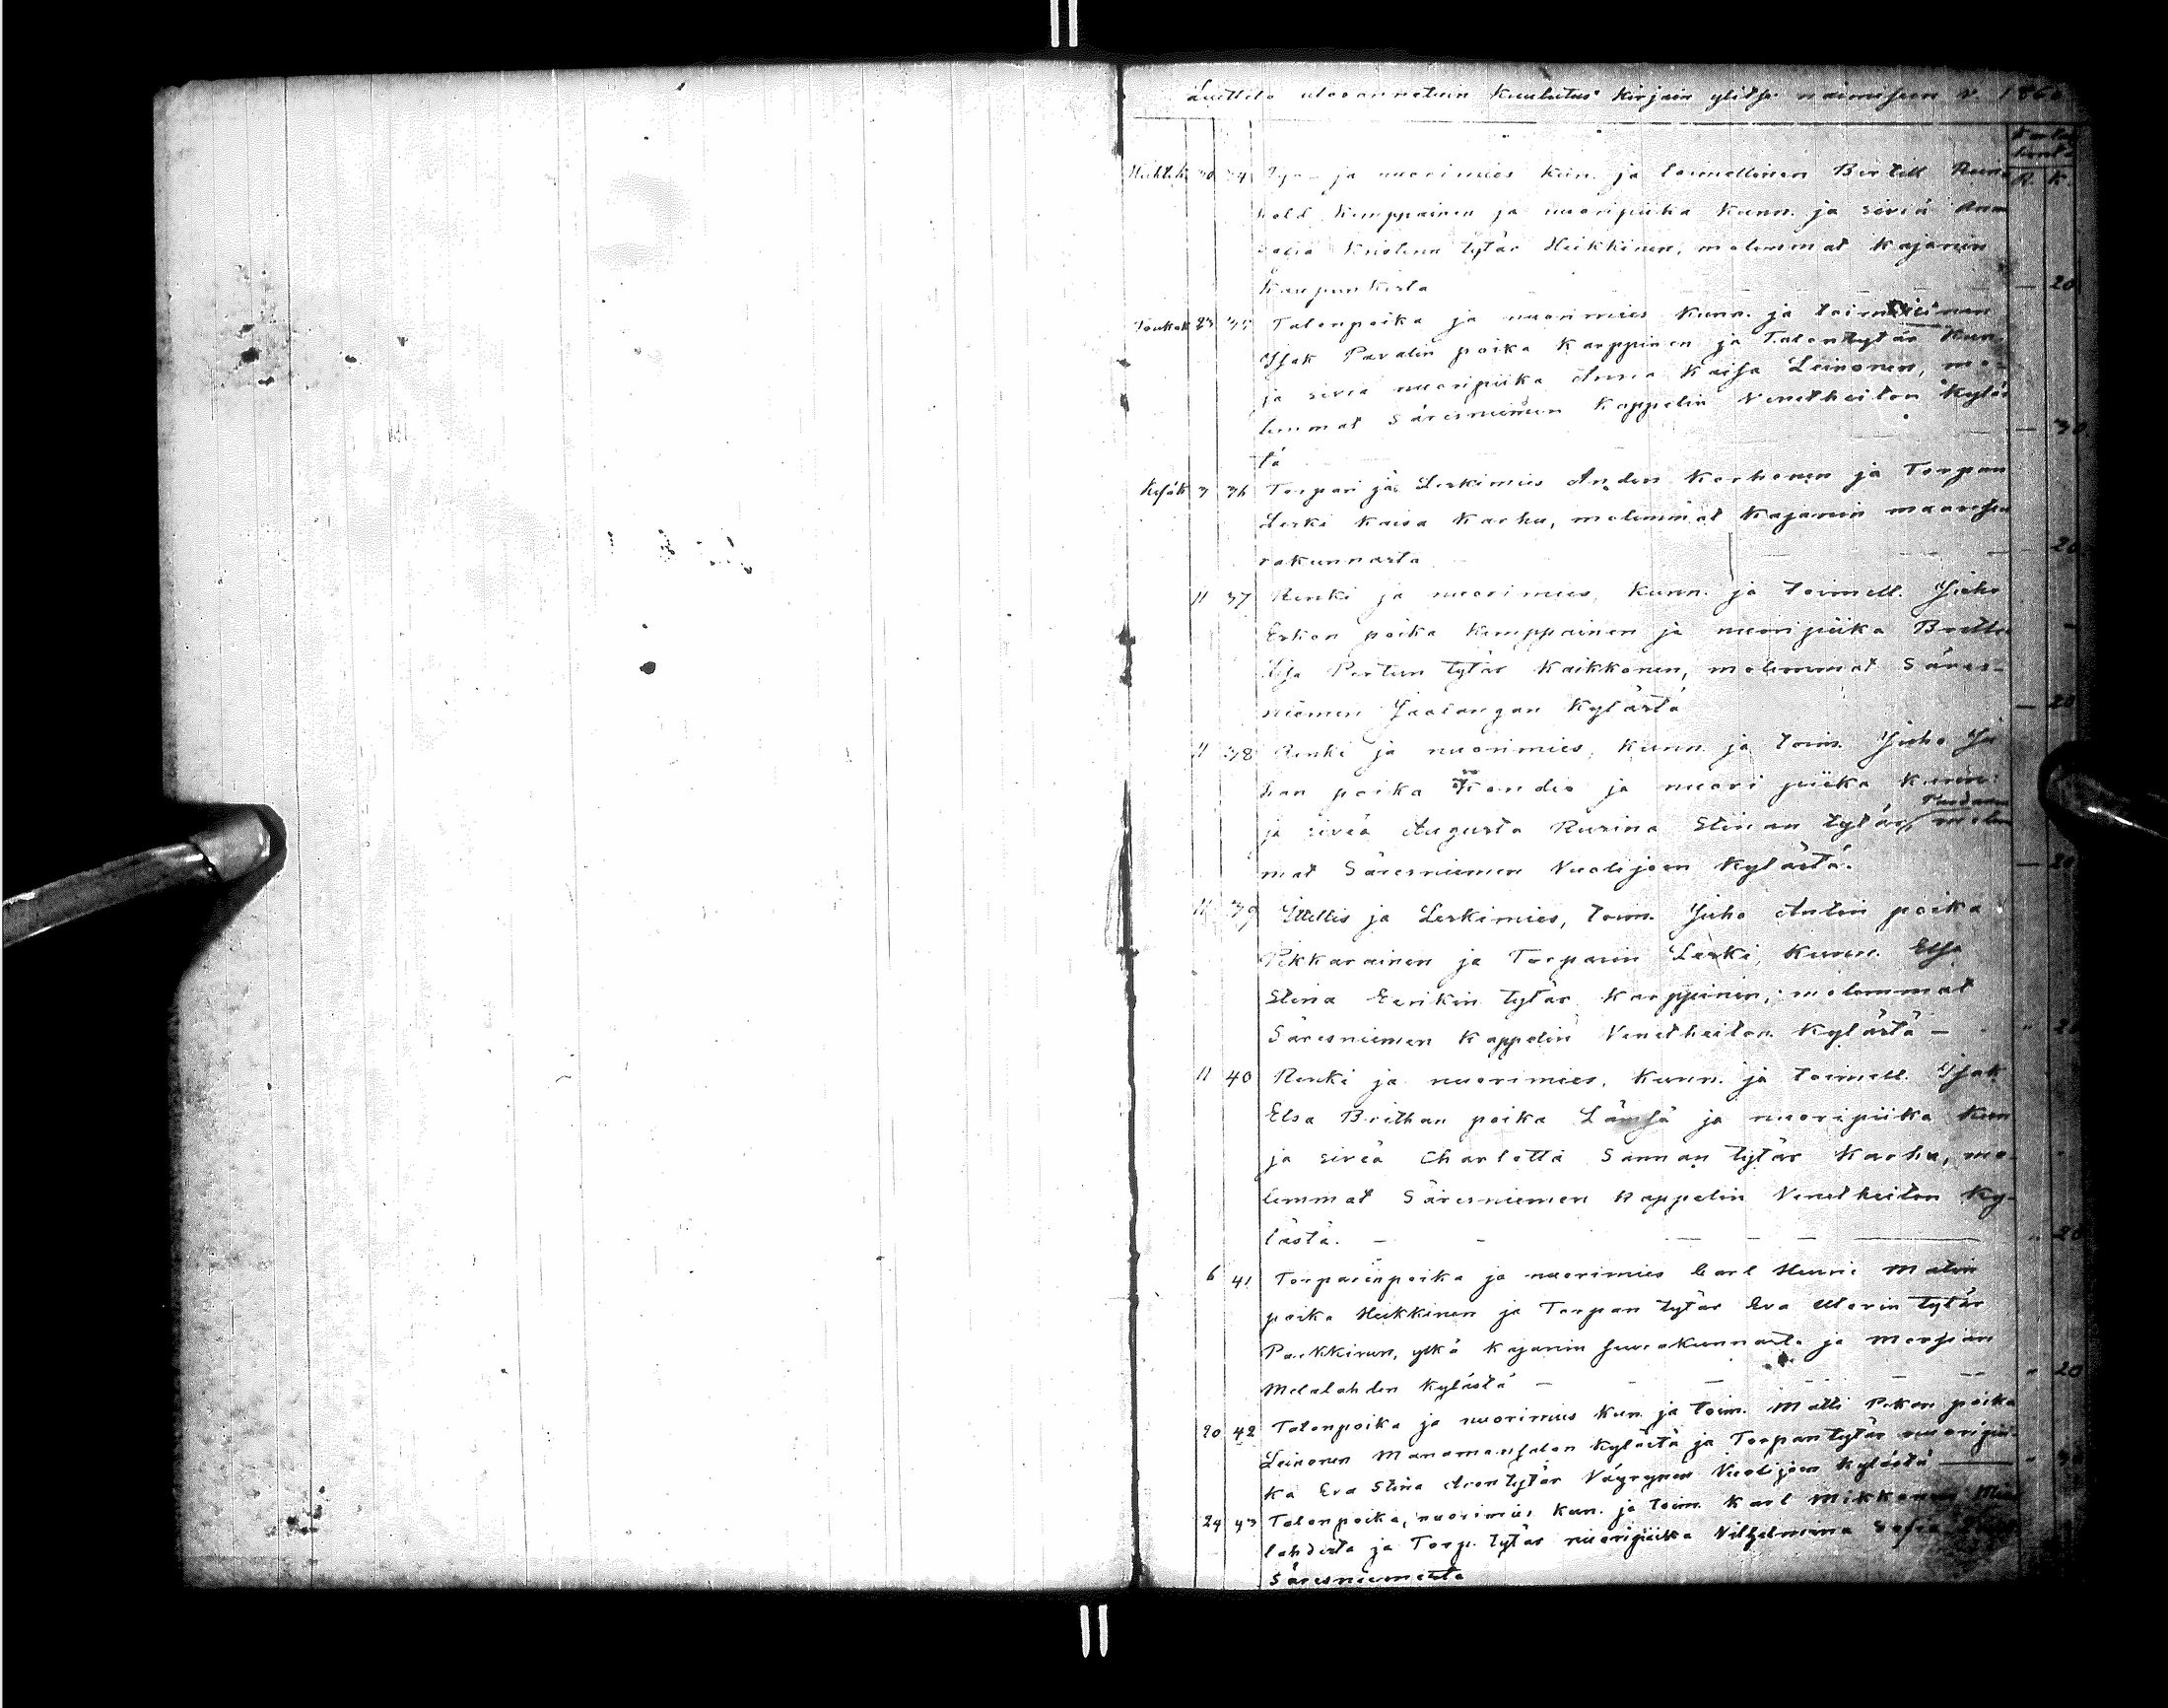 Luettelo ulosannetuin Kuulutus Kirjain ylitse naimiseen v. 186
R. K.
Huhtik 30 34 ja nuorimies Kun. ja toimellinen Bertell Rein
hold Kemppainen ja nuoripiika Kunn. ja siviä
tytär Heikkinen, molemmat Kajanin
Kaupunkista — 20
Toukok 23 35 Talonpoika ja nuorimies Kunn. ja toimellinen
Isak Paavalin poika Karppinen ja Talontytär Kun.
ja siviä nuoripiika Anna Kaisa Leinonen, mo-
lemmat Säresniemen Kappelin Venetheiton Kyläs
tä — 30
Kesäk 3 36 Torpari ja Leskimies Anders Korhonen ja Torpan
Leski Kaisa Karhu, molemmat Kajanin maaseu
rakunnasta — 20
11 37 Renki ja nuorimies, Kunn. ja toimell. Juho
Erkon poika Kemppainen ja nuoripiika Britta
Lisa Pertun tytär Kaikkonen, molemmat Säres-
niemen Jaalangan Kylästä — 20
11 38 Renki ja nuorimies, Kunn. ja toim. Juho Ju
han poika ja nuori piika Kunn.
ja siveä Augusta Rusina Stinan tytär molem
mat Säresniemen Vuolijoen Kylästä. — 20
11 39 Itellis ja Leskimies, toim. Juho Antin poika
Pikkarainen ja Torparin Leski, Kunn. Elsa
Stina Eerikin tytär Karppinen, molemmat
Säresniemen Kappelin Venetheiton Kylästä — " 20
11 40 Renki ja nuorimies, Kunn. ja toimell. Isak
Elsa Brithan poika Lämsä ja nuoripiika Kun
ja siveä Charlotta Sannan tytär Karhu, mo-
lemmat Säresniemen Kappelin Venetheiton Ky-
lästä. — " 20
6 41 Torparinpoika ja nuorimies Carl Henric Matin
poika Heikkinen ja Torpan tytär Eva tytär
ylkä Kajanin seurakunnasta ja Morsian
Melalahden Kylästä — " 20
20 42 Talonpoika ja nuorimies Kun. ja toim. Matti Pekan poika
Leinonen Manamansalon Kylästä ja Torpantytär nuoripii-
ka Eva Stina Arontytär Väyrynen Vuolijoen Kylästä — " 30
24 43 Talonpoika, nuorimies Kun. ja toim. Karl Mikkonen
lahdesta ja Torp. tytär nuoripiika Vilhelmina Sofia
Säresniemestä